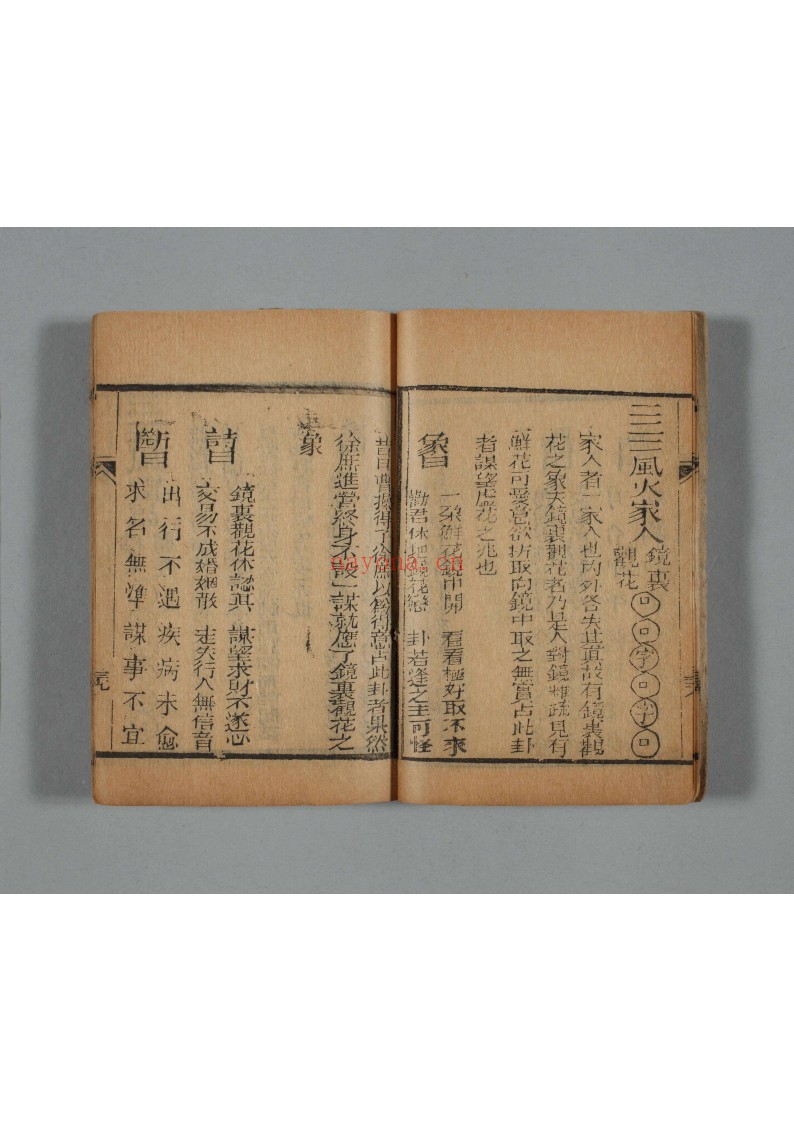 風火家人 鏡裏觀花 口口字口字口
家人者一家人也內外各失其道故有鏡裏觀
花之象夫鏡裏觀花者乃是人對鏡梳見有
鮮花可愛意欲折取向鏡中取之無當占此卦
者謀望虛花之兆也
象曰
一朶鮮花鏡中開 看看極好取不來
勸君休把鏡花戀 卦若逢之主可怪
昔日曹操得了徐庶以爲得意占此卦者果然
徐庶進營終身不設一謀就應了鏡裏觀花之
象
詩曰
鏡裏觀花休認真 謀望求財不遂心
交易不成婚姻散 走失行人無信音
斷曰
出行不遇 疾病未愈
求名無準 謀事不宜
nayona.cn